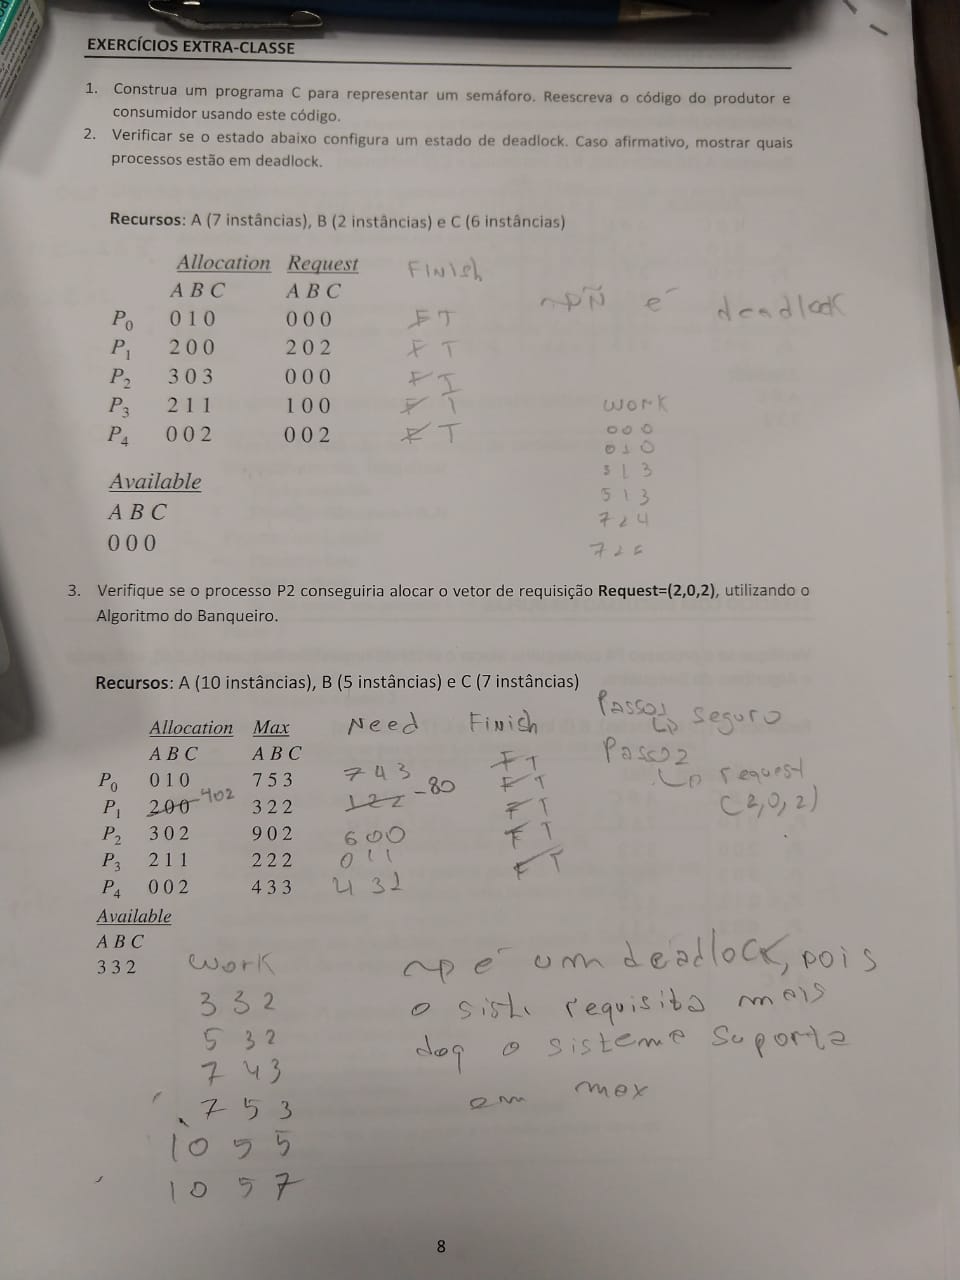 EXERCÍCIOS EXTRA-CLASSE
1. Construa um programa C para representar um semáforo. Reescreva o código do produtor e
consumidor usando este código.
2. Verificar se o estado abaixo configura um estado de deadlock. Caso afirmativo, mostrar quais
processos estão em deadlock.
Recursos: A (7 instâncias), B (2 instâncias) e C (6 instâncias)
Allocation Request Finish
A B C A B C Ñ é deadlock
P0 0 1 0 0 0 0 F T
P1 2 0 0 2 0 2 F T
P2 3 0 3 0 0 0 F T
P3 2 1 1 1 0 0 F T work
P4 0 0 2 0 0 2 F T 0 0 0
0 1 0
Available 3 1 3
A B C 5 1 3
0 0 0 7 2 4
7 2 6
3. Verifique se o processo P2 conseguiria alocar o vetor de requisição Request=(2,0,2), utilizando o
Algoritmo do Banqueiro.
Recursos: A (10 instâncias), B (5 instâncias) e C (7 instâncias)
Passo1
↳ seguro
Allocation Max Need Finish
A B C A B C Passo2
P0 0 1 0 7 5 3 7 4 3 F T ↳ request
P1 2 0 0 402 3 2 2 1 2 2 -80 F T (2,0,2)
P2 3 0 2 9 0 2 6 0 0 F T
P3 2 1 1 2 2 2 0 1 1 F T
P4 0 0 2 4 3 3 4 3 1 F T
Available
A B C
3 3 2
work
3 3 2
5 3 2
7 4 3
7 5 3
10 5 5
10 5 7
é um deadlock, pois
o requisita mais
doq o sistema suporta
em max
8